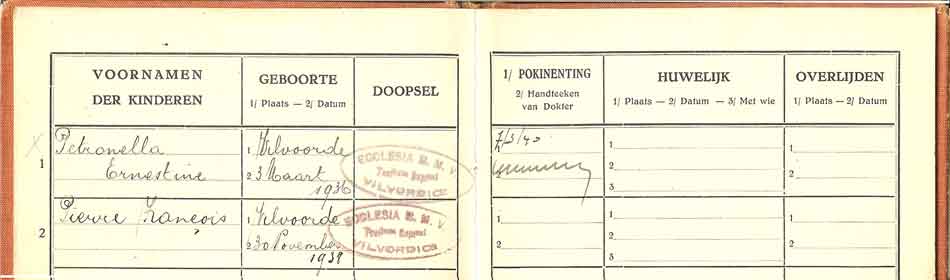 VOORNAMEN DER KINDEREN
GEBOORTE
1/ Plaats — 2/ Datum
DOOPSEL
1/ POKINENTING
2/ Handteeken van Dokter
HUWELIJK
1/ Plaats — 2/ Datum — 3/ Met wie
OVERLIJDEN
1/ Plaats — 2/ Datum
1
Petronella
Ernestine
1 Vilvoorde
2 3 Maart
1936
ECCLESIA B. M. V
VILVORDICE
7/3/40
1
2
3
1
2
2
Pierre François
1 Vilvoorde
2 30 November
1938
ECCLESIA B. M. V
VILVORDICE
1
2
1
2
3
1
2